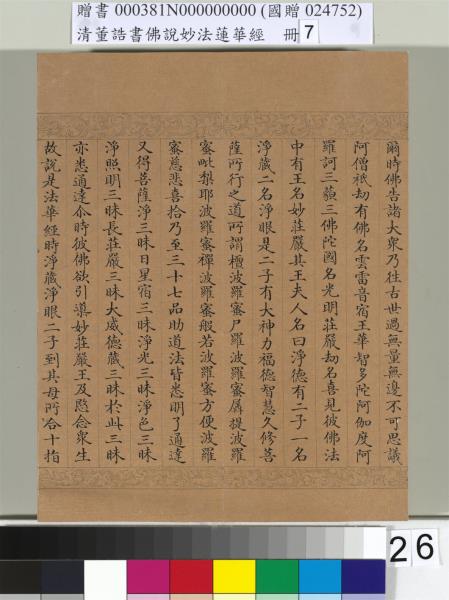 贈書 000381N000000000 (國贈 024752)
清董誥書佛說妙法蓮華經 冊 7
爾時佛告諸大衆乃往古世過無量無邊不可思議
阿僧祇劫有佛名雲雷音宿王華智多陀阿伽度阿
羅訶三藐三佛陀國名光明莊嚴劫名喜見彼佛法
中有王名妙莊嚴其王夫人名曰淨德有二子一名
淨藏二名淨眼是二子有大神力福德智慧久修菩
薩所行之道所謂檀波羅蜜尸羅波羅蜜羼提波羅
蜜毗梨耶波羅蜜禪波羅蜜般若波羅蜜方便波羅
蜜慈悲喜捨乃至三十七品助道法皆悉明了通達
又得菩薩淨三昧日星宿三昧淨光三昧淨色三昧
淨照明三昧長莊嚴三昧大威德藏三昧於此三昧
亦悉通達尒時彼佛欲引導妙莊嚴王及愍念衆生
故說是法華經時淨藏淨眼二子到其母所合十指
26